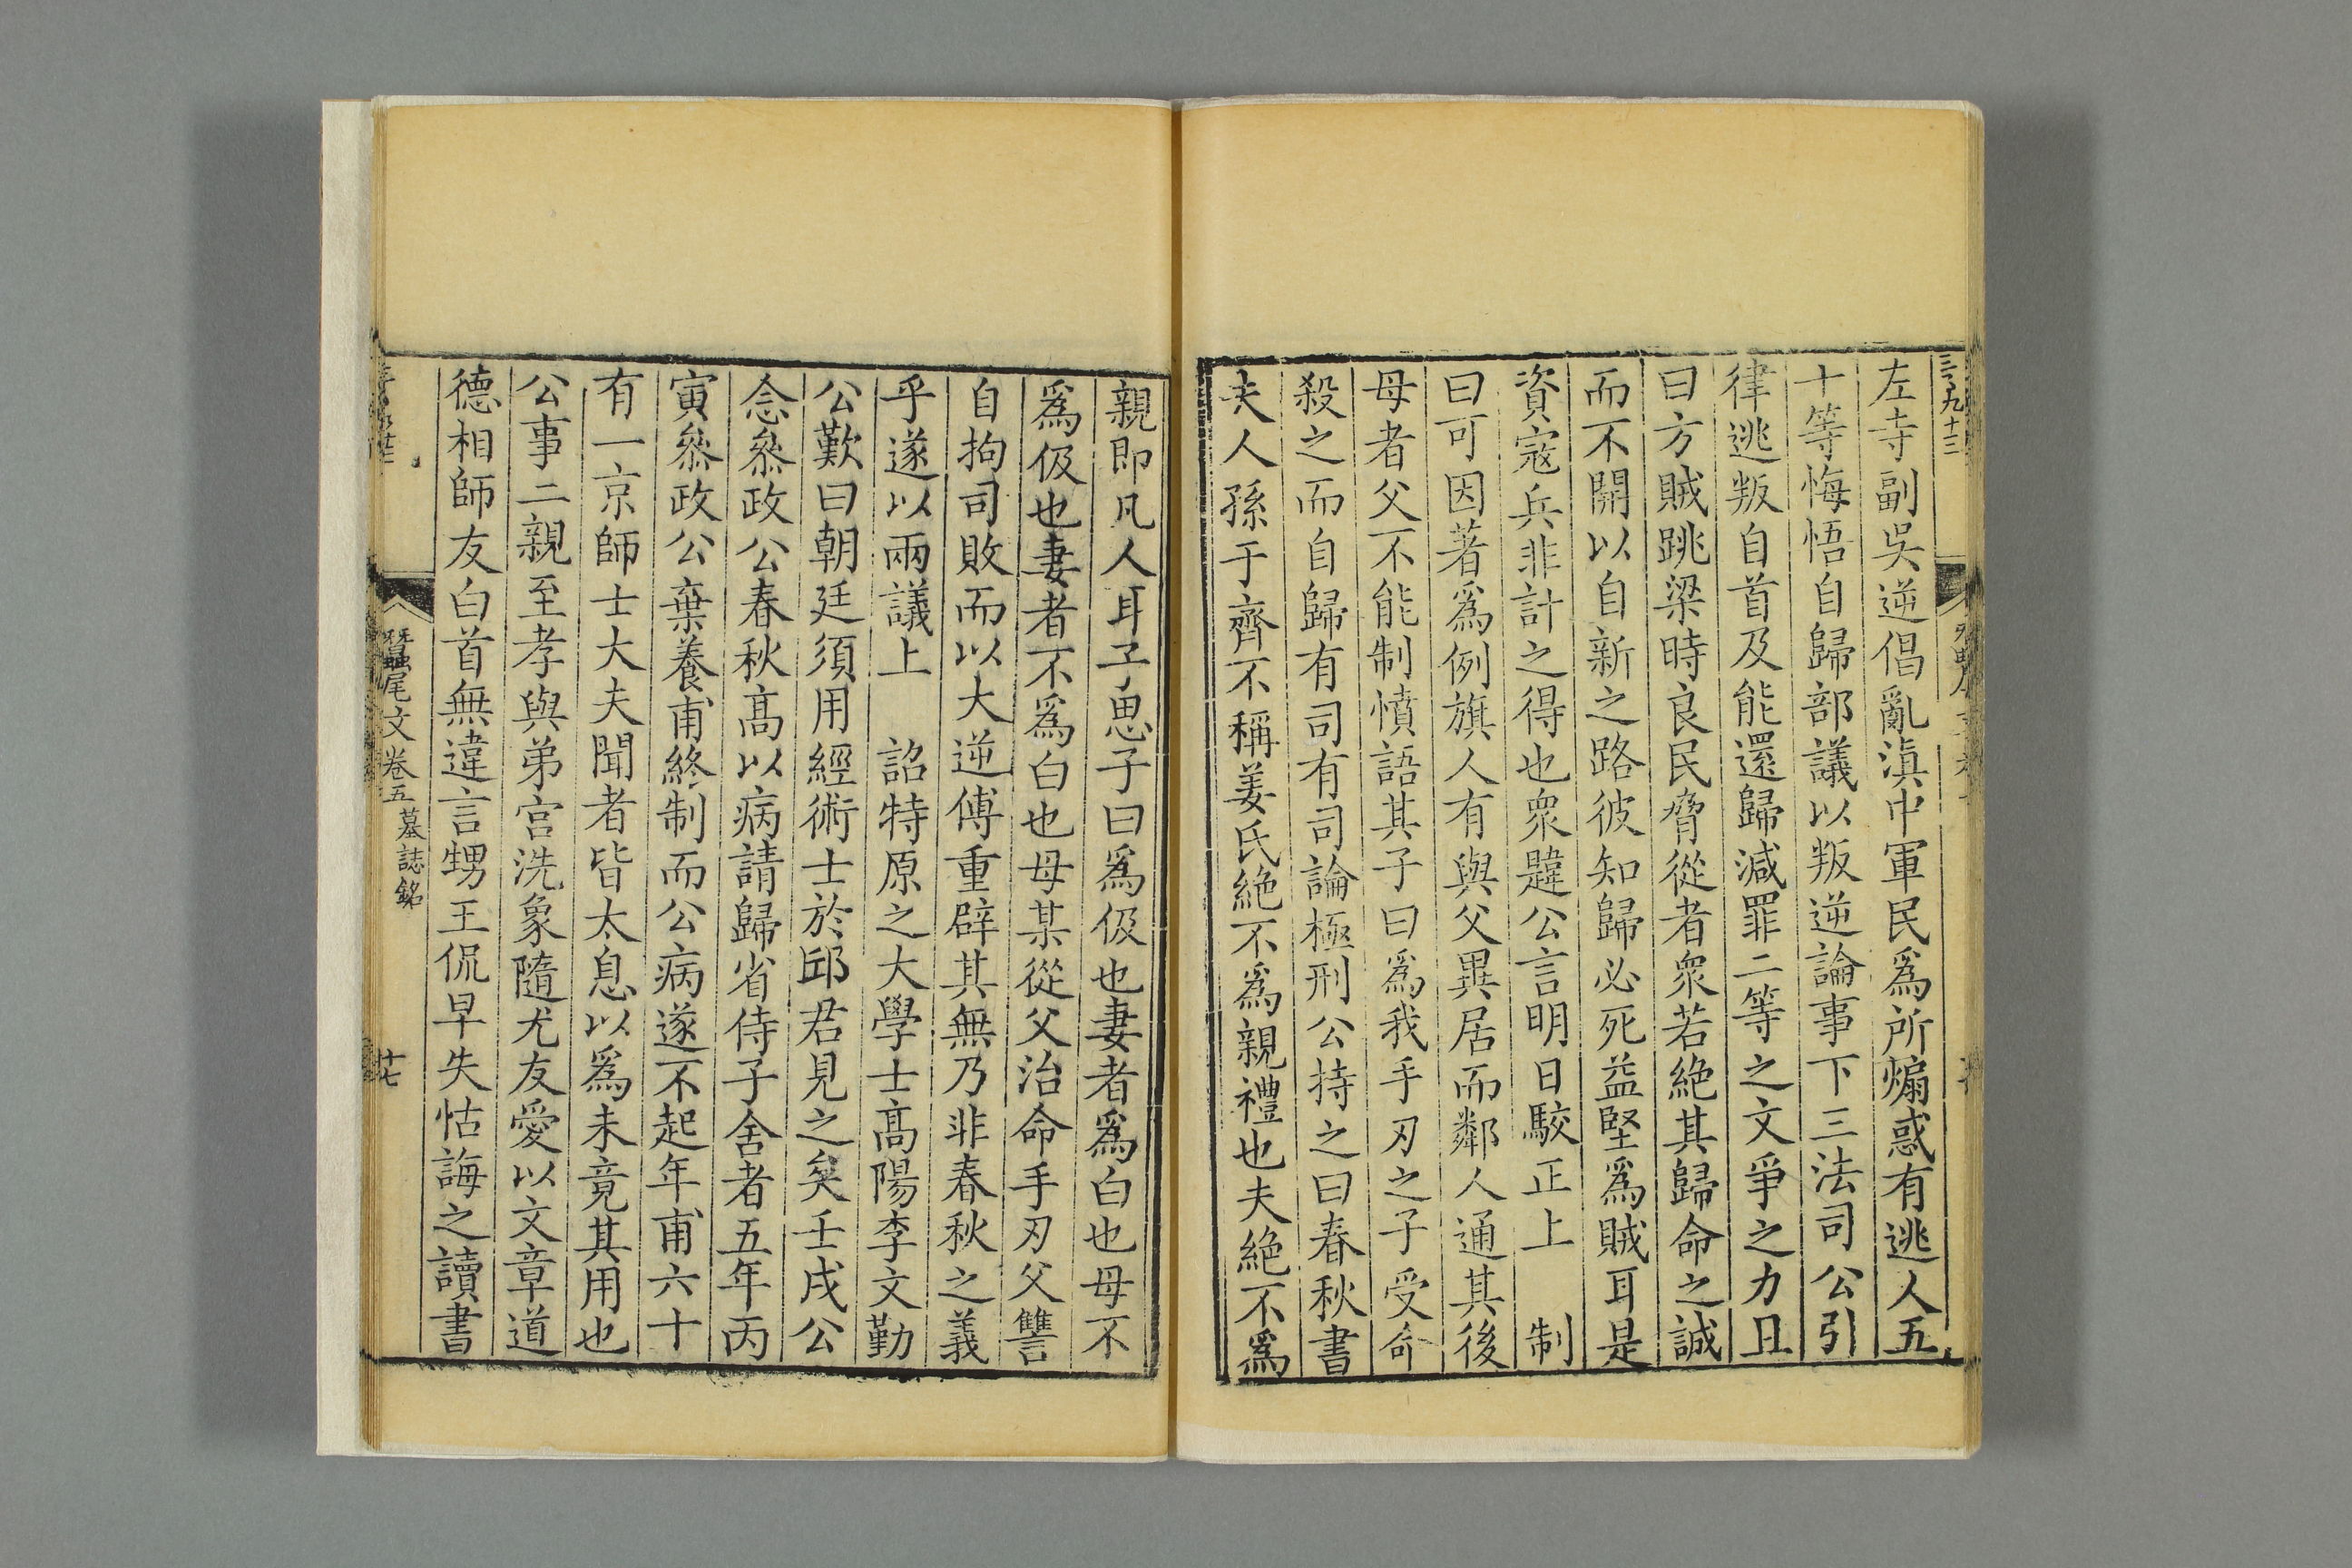 左寺副吳逆倡亂滇中軍民爲所煽惑有逃人五
十等悔悟自歸部議以叛逆論事下三法司公引
律逃叛自首及能還歸減罪二等之文爭之力且
曰方賊跳梁時良民脅從者衆若絶其歸命之誠
而不開以自新之路彼知歸必死益堅爲賊耳是
資寇兵非計之得也衆韙公言明日駮正上 制
曰可因著爲例旗人有與父異居而鄰人通其後
母者父不能制憤語其子曰爲我手刃之子受命
殺之而自歸有司有司論極刑公持之曰春秋書
夫人孫于齊不稱姜氏絶不爲親禮也夫絶不爲
親即凡人耳子思子曰爲伋也妻者爲白也母不
爲伋也妻者不爲白也母某從父治命手刃父讐
自拘司敗而以大逆傅重辟其無乃非春秋之義
乎遂以兩議上 詔特原之大學士高陽李文勤
公歎曰朝廷須用經術士於邱君見之矣壬戌公
念叅政公春秋高以病請歸省侍子舍者五年丙
寅叅政公棄養甫終制而公病遂不起年甫六十
有一京師士大夫聞者皆太息以爲未竟其用也
公事二親至孝與弟宮洗象隨尤友愛以文章道
德相師友白首無違言甥王侃早失怙誨之讀書
蠶尾文卷五 墓誌銘
十七